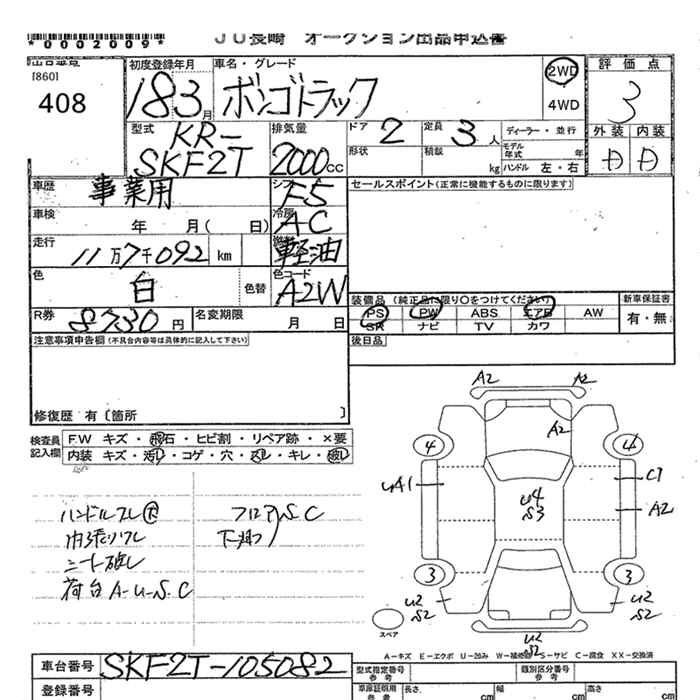 *0002009*
JU長崎 オークション出品申込書
[860]
408
初度登録年月
18 3月
車名・グレード
ボンゴトラック
2WD
4WD
評価点
3
外装 内装
D D
型式
KR-
SKF2T
排気量
2000cc
ドア 2
定員 3人
形状
積載 kg
ディーラー・並行
モデル年式 年
ハンドル 左・右
車歴 事業用
シフト F5
セールスポイント(正常に機能するものに限ります)
車検 年 月( 日)
冷房 AC
走行 11万7千092 km
燃料 軽油
色 白 色替
色コード A2W
装備品 (純正品に限り○をつけてください)
PS PW ABS エアB AW
SR ナビ TV カワ
新車保証書
有・無
R券 8730円
名変期限 月 日
後日品
注意事項申告欄(不具合内容等は具体的に記入して下さい)
修復歴 有〔箇所 〕
検査員記入欄
F.W キズ・飛石・ヒビ割・リペア跡・×要
内装 キズ・汚レ・コゲ・穴・スレ・キレ・破レ
フロアS.C
下廻り
シート破レ
荷台A-U-S.C
A2 A2
A2
4 4
UA1
U4
S3
C1
A2
3 3
U2
S2
U2
S2
U2
S2
スペア
A-キズ E-エクボ U-凹み W-補修跡 S-サビ C-腐食 XX-交換済
車台番号 SKF2T-105082
登録番号
型式指定番号
参考
類別区分番号
参考
車庫証明用
参考
長さ cm
幅 cm
高さ cm